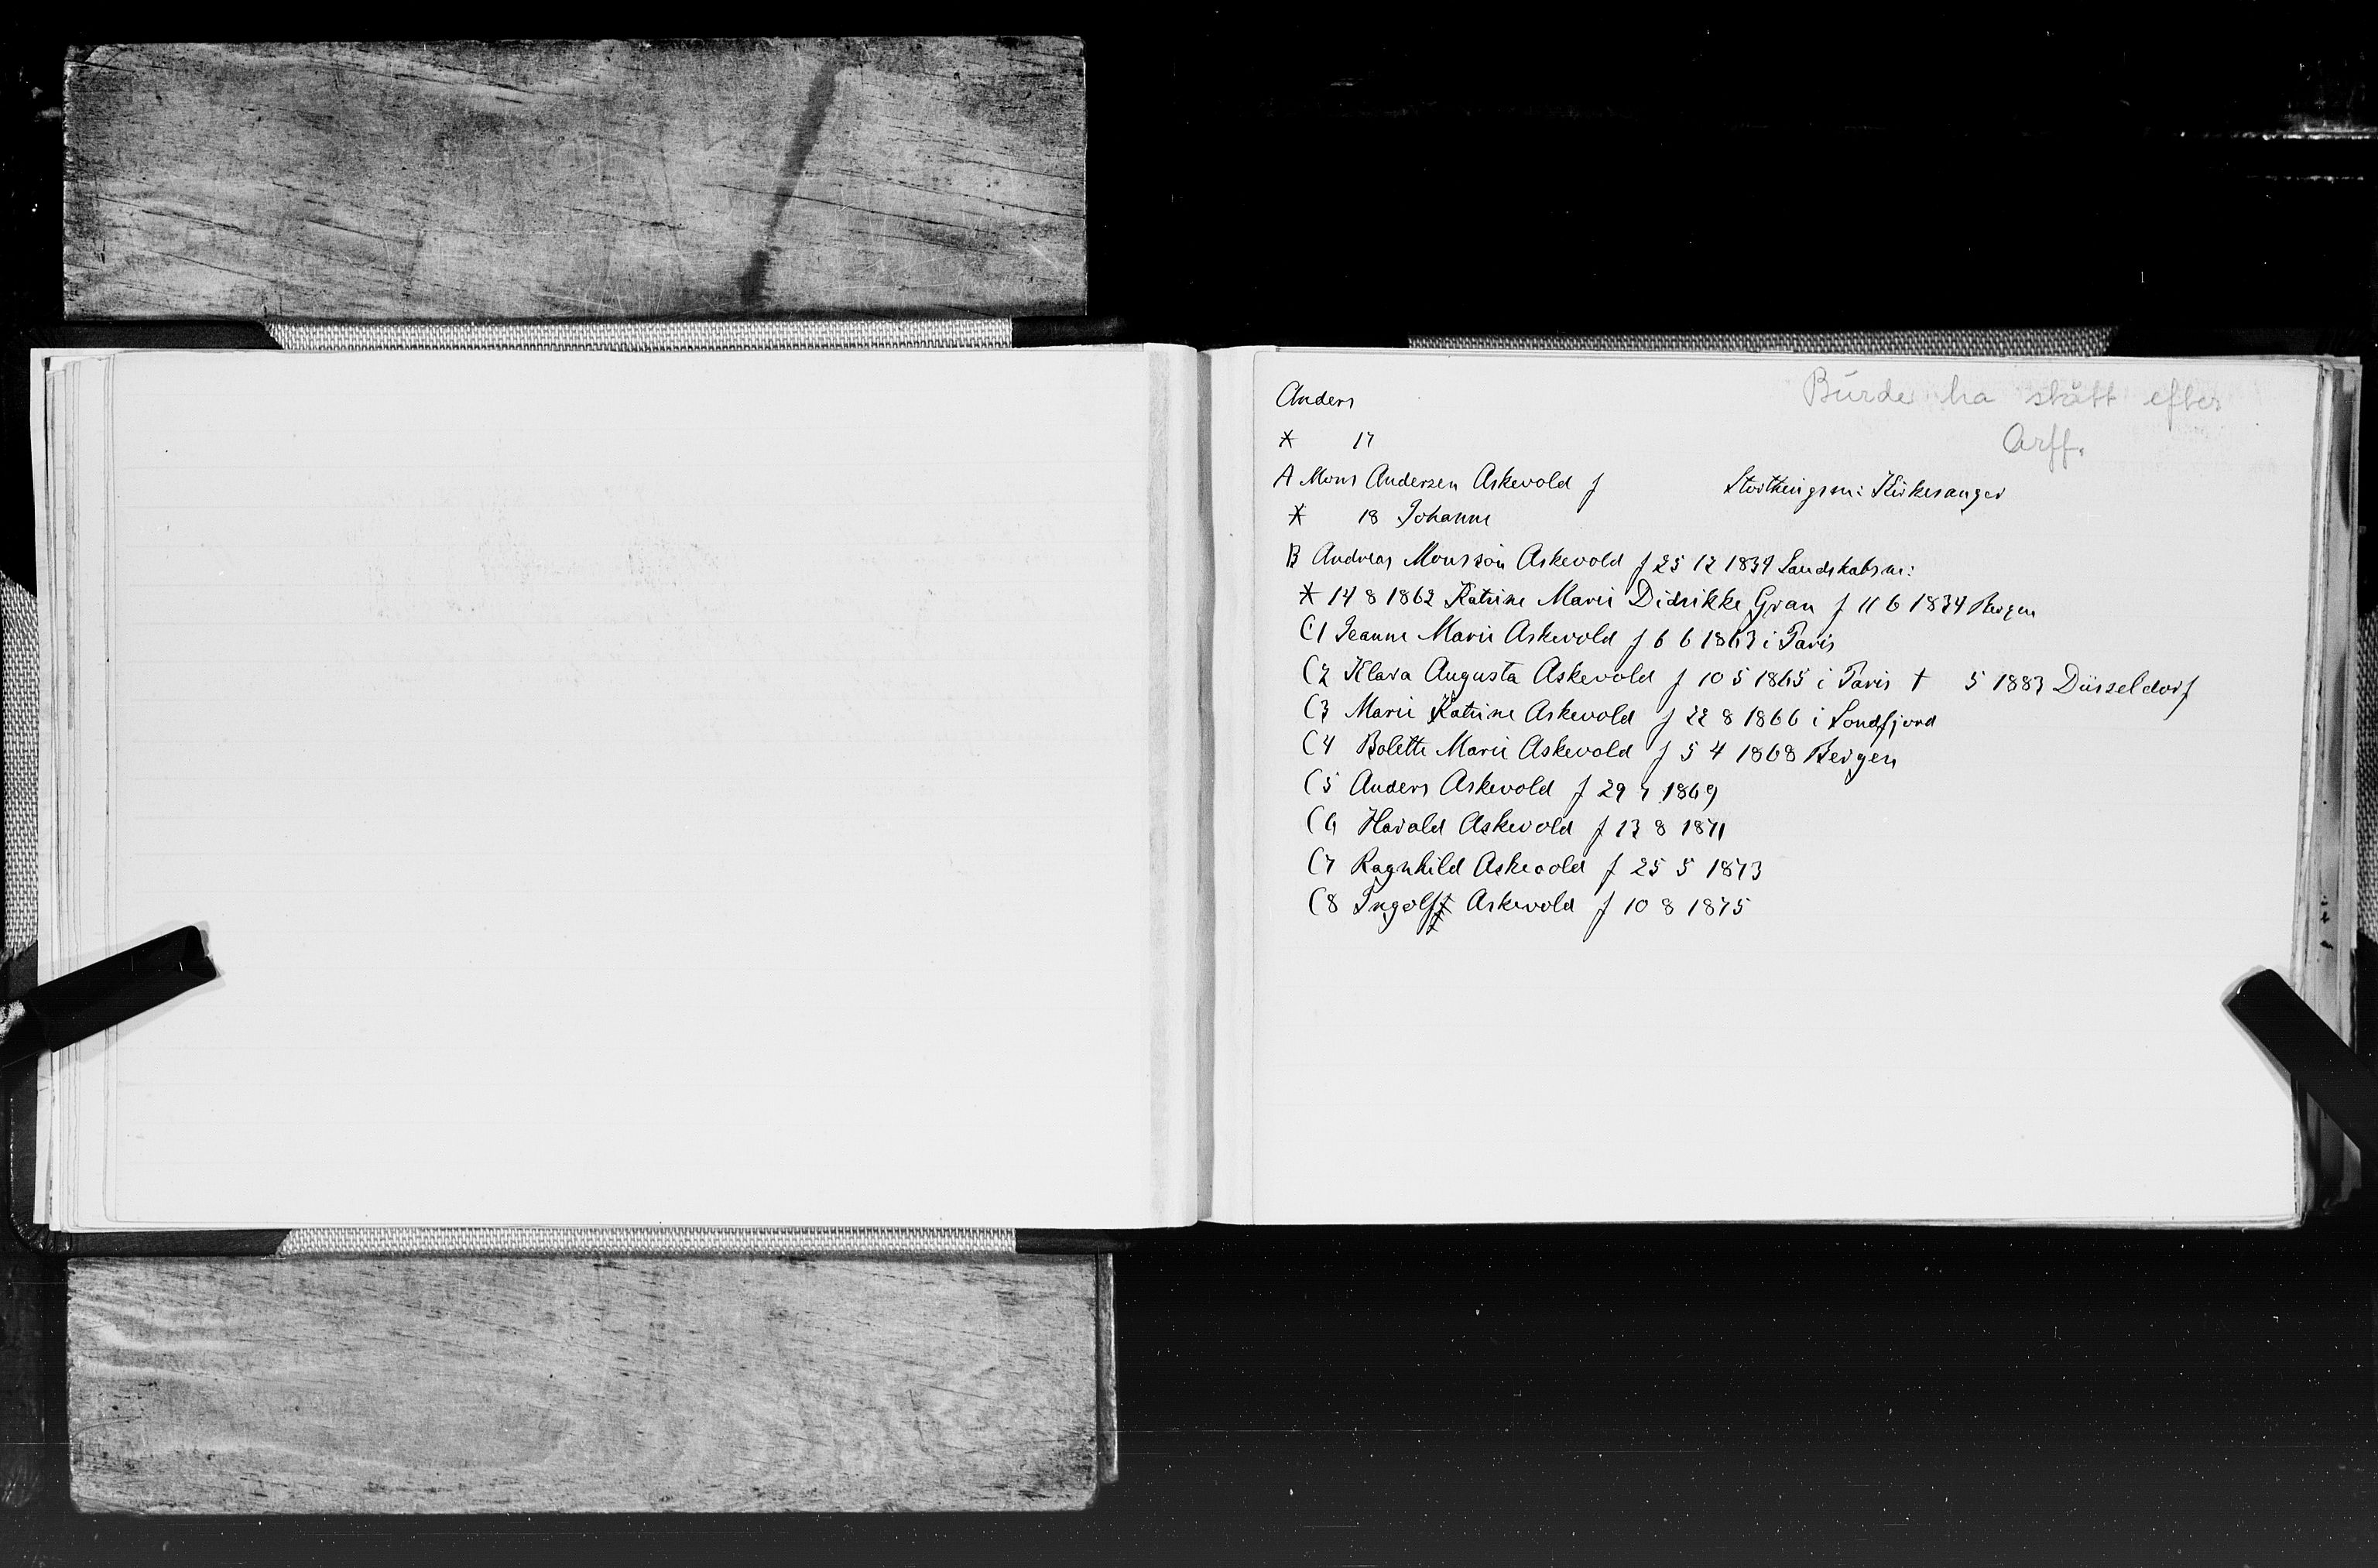 Burde ha stått efter
Arff.
Anders
* 17
A Mons Andersen Askevold f Storthingsm: Kirkesanger
* 18 Johanne
B Andreas Monsson Askevold f 25 12 1834 Landskabsm:
* 14 8 1862 Katrine Marie Didrikke Gran f 11 6 1834 Bergen
C1 Jeanne Marie Askevold f 6 6 1863 i Paris
C2 Klara Augusta Askevold f 10 5 1865 i Paris † 5 1883 Düsseldorf
C3 Marie Katrine Askevold f 22 8 1866 i Sondfjord
C4 Bolette Marie Askevold f 5 4 1868 Bergen
C5 Anders Askevold f 29 7 1869
C6 Harald Askevold f 13 8 1871
C7 Ragnhild Askevold f 25 5 1873
C8 Ingolf Askevold f 10 8 1875